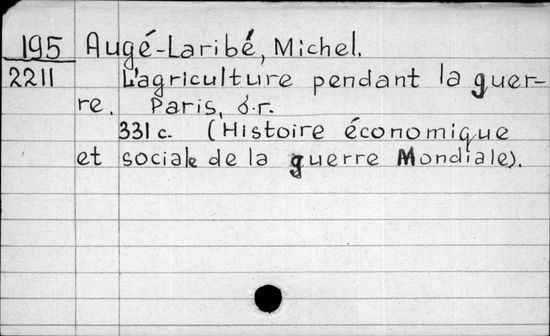 195 Augé-Laribé, Michel.
2211 L'agriculture pendant la guer-
re. Paris, б.г.
331 с. (Histoire économique
et sociale de la guerre Mondiale).